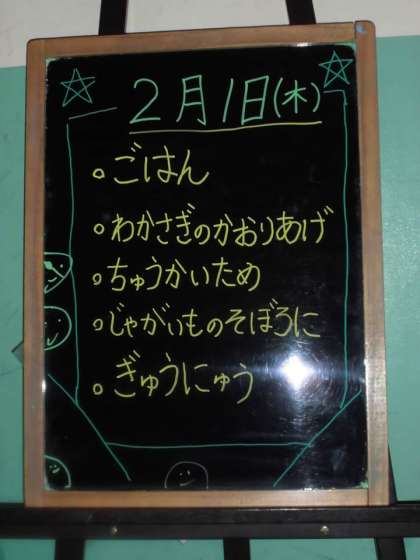 2月1日(木)
。ごはん
。わかさぎのかおりあげ
。ちゅうかいため
。じゃがいものそぼろに
。ぎゅうにゅう